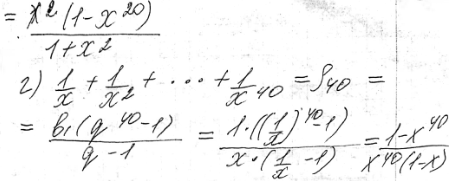 = x²(1-x²⁰)/(1+x²)
г) 1/x + 1/x² + ... + 1/x⁴⁰ = S₄₀ =
= b₁(q⁴⁰-1)/(q-1) = 1·((1/x)⁴⁰-1)/(x·(1/x-1)) = (1-x⁴⁰)/(x⁴⁰(1-x))